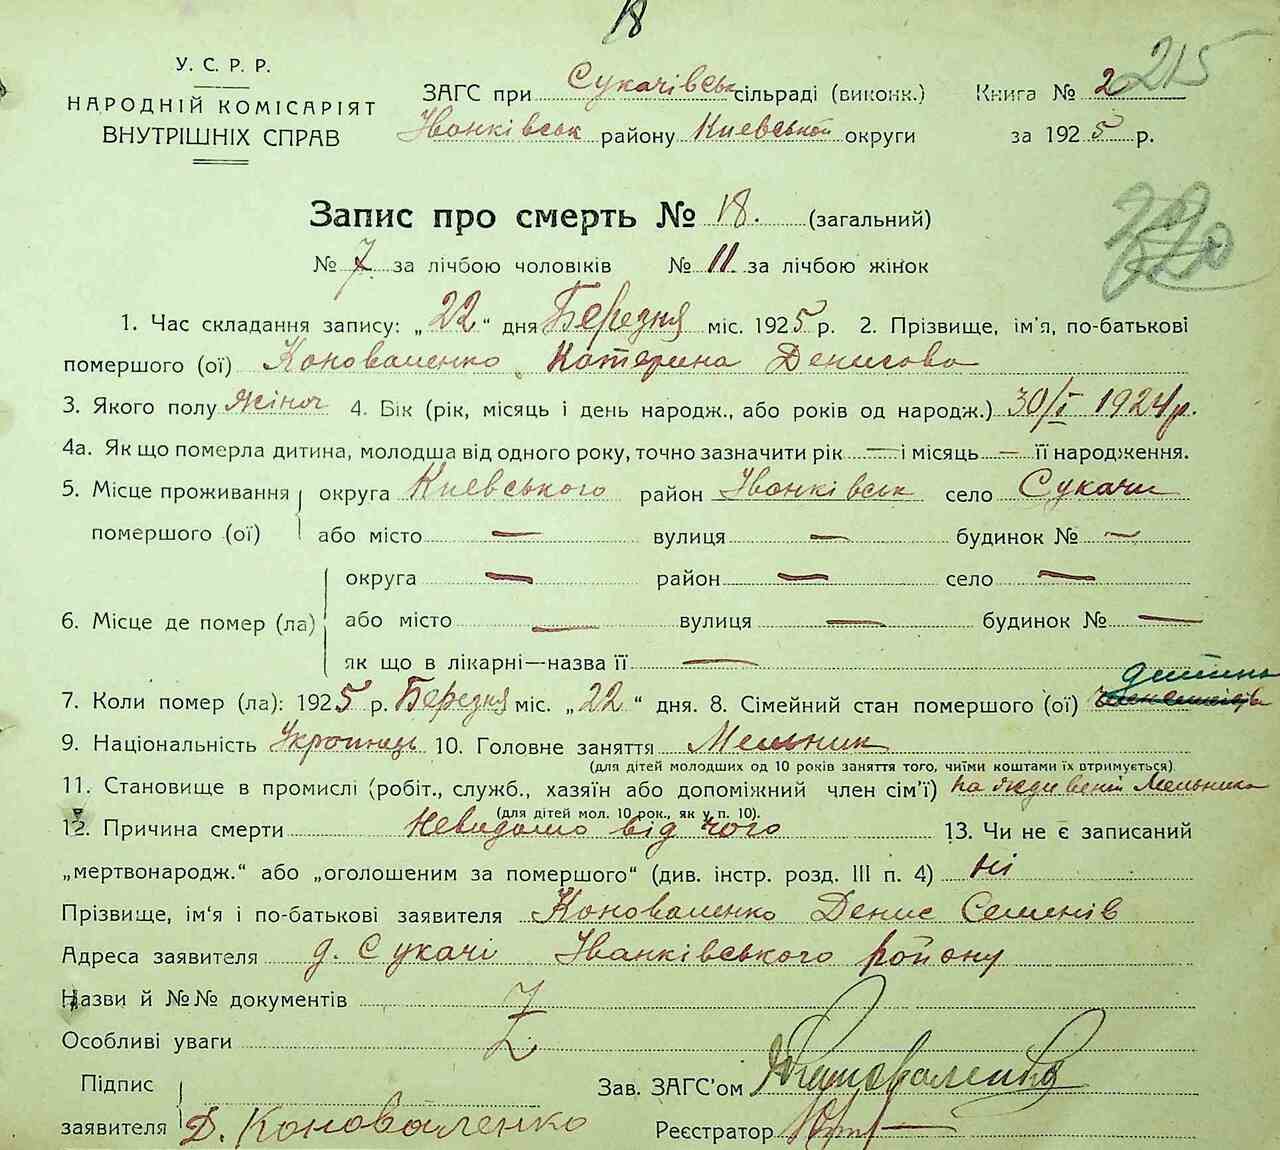 18
У. С. Р. Р.
НАРОДНІЙ КОМІСАРІЯТ
ВНУТРІШНІХ СПРАВ
ЗАГС при Сукачівськ сільраді (виконк.)
Іванківськ району Киевської округи
Книга № 2 215
за 1925 р.
Запис про смерть № 18. (загальний)
№ 7 за лічбою чоловіків № 11. за лічбою жінок
1. Час складання запису: „22“ дня Березня міс. 1925 р. 2. Прізвище, ім'я, по-батькові
помершого (ої) Коноваленко Катерина Денисова
3. Якого полу жіноч 4. Вік (рік, місяць і день народж., або років од народж.) 30/I 1924 р.
4а. Як що померла дитина, молодша від одного року, точно зазначити рік — і місяць — її народження.
5. Місце проживання помершого (ої) округа Киевського район Іванківськ село Сукачи
або місто — вулиця — будинок № —
6. Місце де помер (ла) округа — район — село —
або місто — вулиця — будинок № —
як що в лікарні—назва її —
7. Коли помер (ла): 1925 р. Березня міс. „22“ дня. 8. Сімейний стан помершого (ої) дитина
9. Національність Украінць 10. Головне заняття Мельник
(для дітей молодших од 10 років заняття того, чиїми коштами їх втримується)
11. Становище в промислі (робіт., служб., хазяїн або допоміжний член сім'ї) Мельника
(для дітей мол. 10 рок., як у п. 10).
12. Причина смерти Невидомо від чого 13. Чи не є записаний
„мертвонародж.“ або „оголошеним за помершого“ (див. інстр. розд. III п. 4) ні
Прізвище, ім'я і по-батькові заявителя Коноваленко Денис Семенів
Адреса заявителя д. Сукачі Іванківського району
Назви й №№ документів
Особливі уваги Z
Підпис заявителя Д. Коноваленко
Зав. ЗАГС'ом
Реєстратор